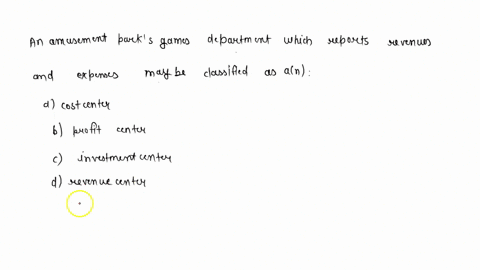 An amusement park's games department which reports revenues
and expenses may be classified as a(n):
a) cost center
b) profit center
c) investment center
d) revenue center